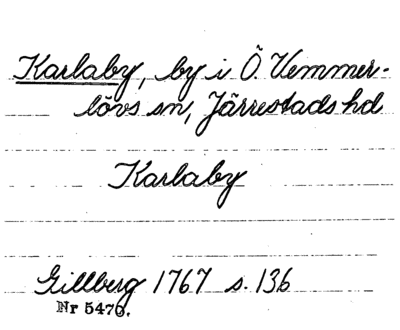 Karlaby, by i Ö. Vemmer-
lövs sn, Järrestads hd
Karlaby
Gillberg 1767 s. 136
Nr 5470.